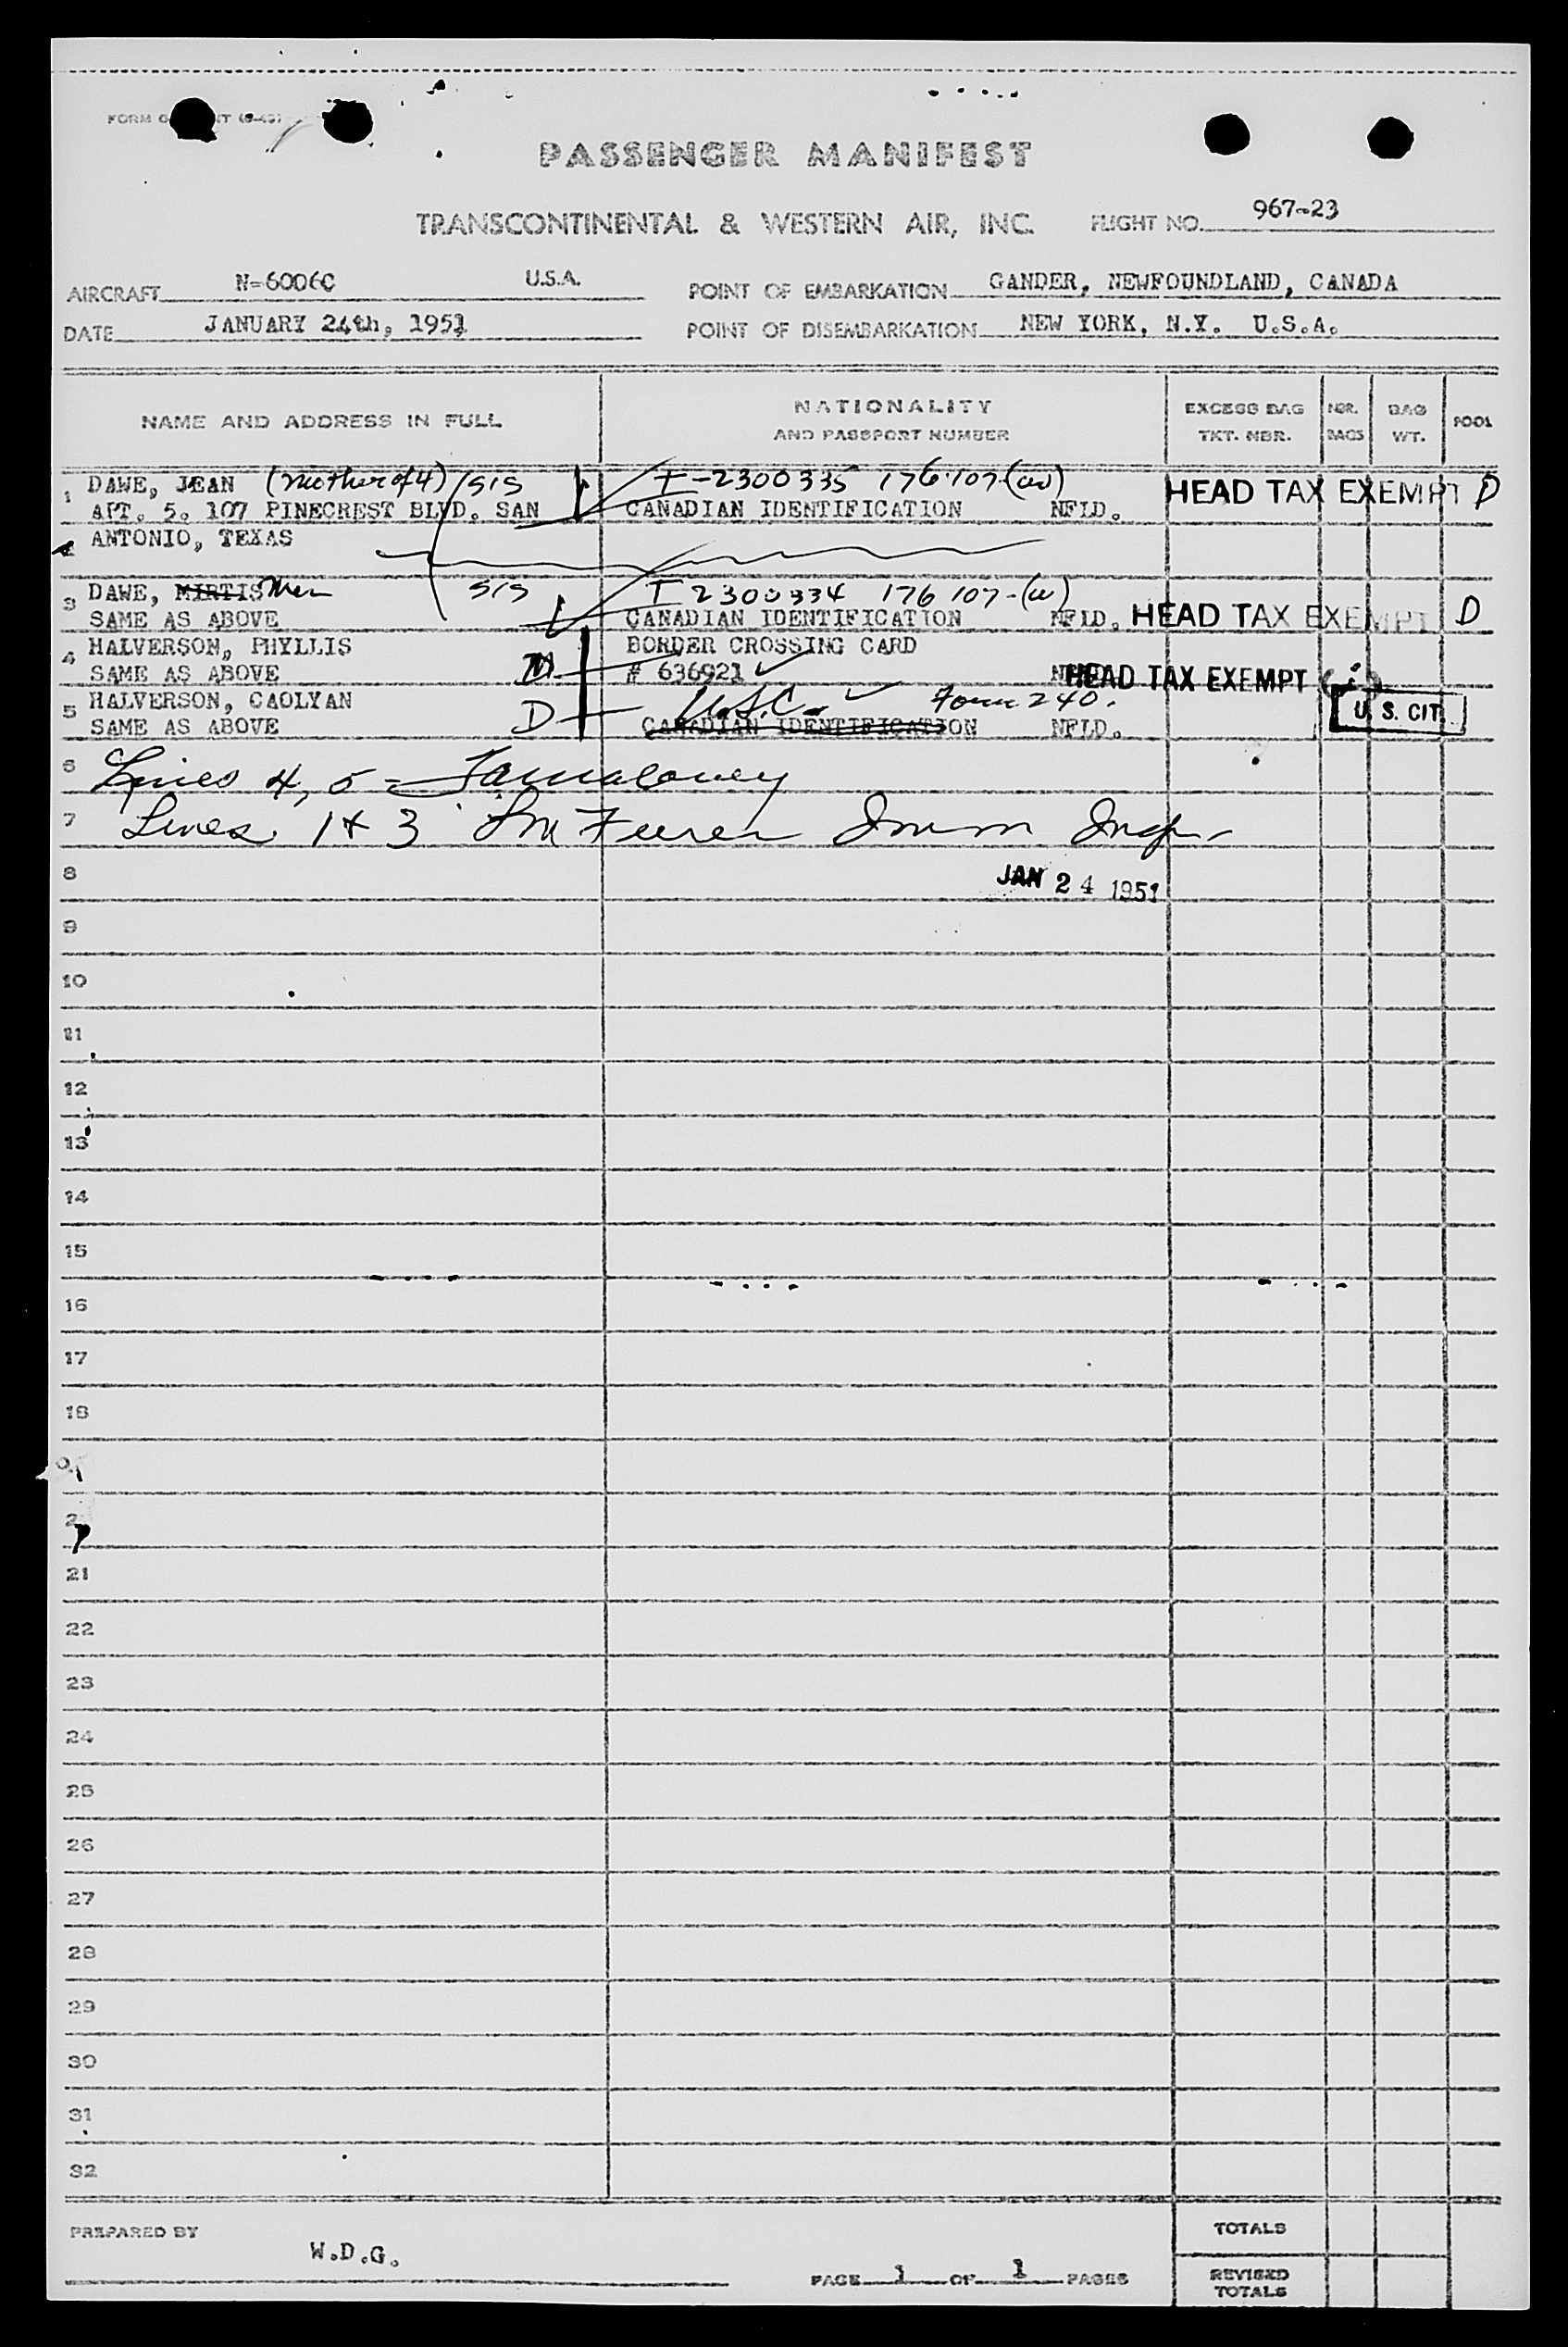 PASSENGER MANIFEST
TRANSCONTINENTAL & WESTERN AIR, INC. FLIGHT NO. 967-23
AIRCRAFT N-6006C U.S.A. POINT OF EMBARKATION GANDER, NEWFOUNDLAND, CANADA
DATE JANUARY 24th, 1951 POINT OF DISEMBARKATION NEW YORK, N.Y. U.S.A.
NAME AND ADDRESS IN FULL NATIONALITY AND PASSPORT NUMBER EXCESS BAG TKT. NBR. NBR. BAGS BAG WT. POOL
1 DAWE, JEAN (Mother of 4) SIS T-2300335 176.107-(w) HEAD TAX EXEMPT D
APT. 5, 107 PINECREST BLVD. SAN CANADIAN IDENTIFICATION NFLD.
2 ANTONIO, TEXAS
3 DAWE, MIRTIS SIS T 2300334 176 107-(w)
SAME AS ABOVE CANADIAN IDENTIFICATION NFLD. HEAD TAX EXEMPT D
4 HALVERSON, PHYLLIS BORDER CROSSING CARD
SAME AS ABOVE M # 636921 HEAD TAX EXEMPT (i)
5 HALVERSON, CAOLYAN U.S.C. Form 240. U. S. CIT
SAME AS ABOVE D CANADIAN IDENTIFICATION NFLD.
6 Lines 4, 5 =
7 Lines 1 & 3 Imm Insp.
8 JAN 24 1951
9
10
11
12
13
14
15
16
17
18
21
22
23
24
25
26
27
28
29
30
31
32
PREPARED BY W.D.G. PAGE 1 OF 1 PAGES
TOTALS
REVISED TOTALS